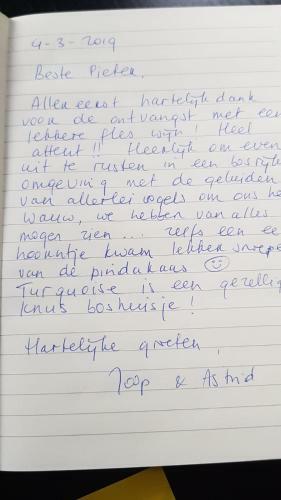 4-3-2019
Beste Pieter,
Allereerst hartelijk dank
voor de ontvangst met een
lekkere fles wijn! Heel
attent!! Heerlijk om even
uit te rusten in een bosrijke
omgeving met de geluiden
van allerlei vogels om ons he
Wauw, we hebben van alles
mogen zien... zelfs een ee
hoorntje kwam lekker snoepe
van de pindakaas ☺
Turquoise is een gezellig
knus boshuisje!
Hartelijke groeten,
Joop & Astrid